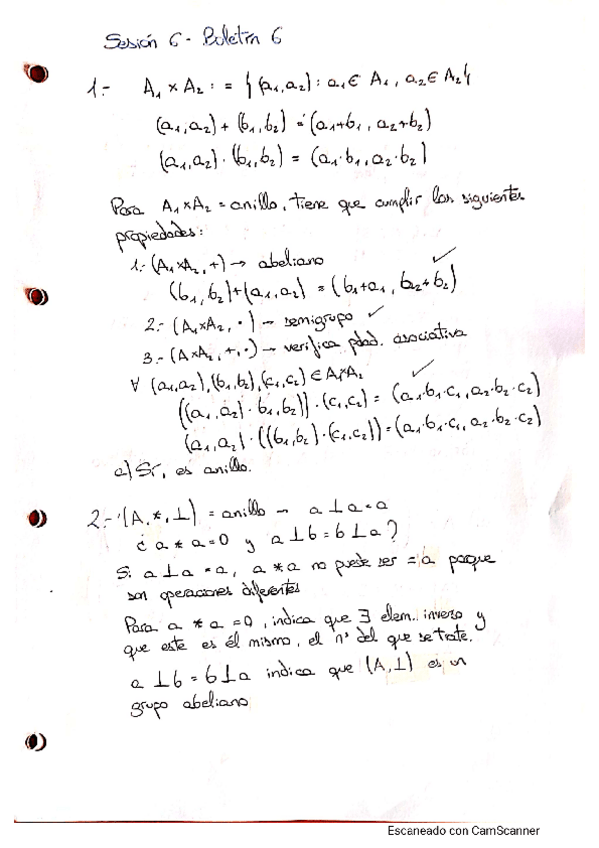 Sesión 6 - Boletín 6
1.- A₁ x A₂ : = { (a₁,a₂) : a₁ ∈ A₁ , a₂ ∈ A₂ }
(a₁,a₂) + (b₁,b₂) = (a₁+b₁ , a₂+b₂)
(a₁,a₂) · (b₁,b₂) = (a₁·b₁, a₂·b₂)
Para A₁xA₂ = anillo, tiene que cumplir las siguientes
propiedades:
1.- (A₁xA₂, +) → abeliano
(b₁,b₂)+(a₁,a₂) = (b₁+a₁ , b₂+b₂) ✓
2.- (A₁xA₂, ·) → semigrupo ✓
3.- (AxA₂, +, ·) → verifica pdad. asociativa
∀ (a₁,a₂), (b₁,b₂), (c₁,c₂) ∈ A₁xA₂ ✓
((a₁,a₂) · b₁,b₂)) · (c₁,c₂) = (a₁·b₁·c₁, a₂·b₂·c₂)
(a₁,a₂) · ((b₁,b₂) · (c₁,c₂)) = (a₁·b₁·c₁, a₂·b₂·c₂)
a) Sí, es anillo.
2.- (A, *, ⊥) = anillo → a ⊥ a = a
¿ a * a = 0 y a ⊥ b = b ⊥ a ?
Si a ⊥ a = a, a * a no puede ser = a porque
son operaciones diferentes
Para a * a = 0, indica que ∃ elem. inverso y
que este es él mismo, el nº del que se trate.
a ⊥ b = b ⊥ a indica que (A, ⊥) es un
grupo abeliano
Escaneado con CamScanner